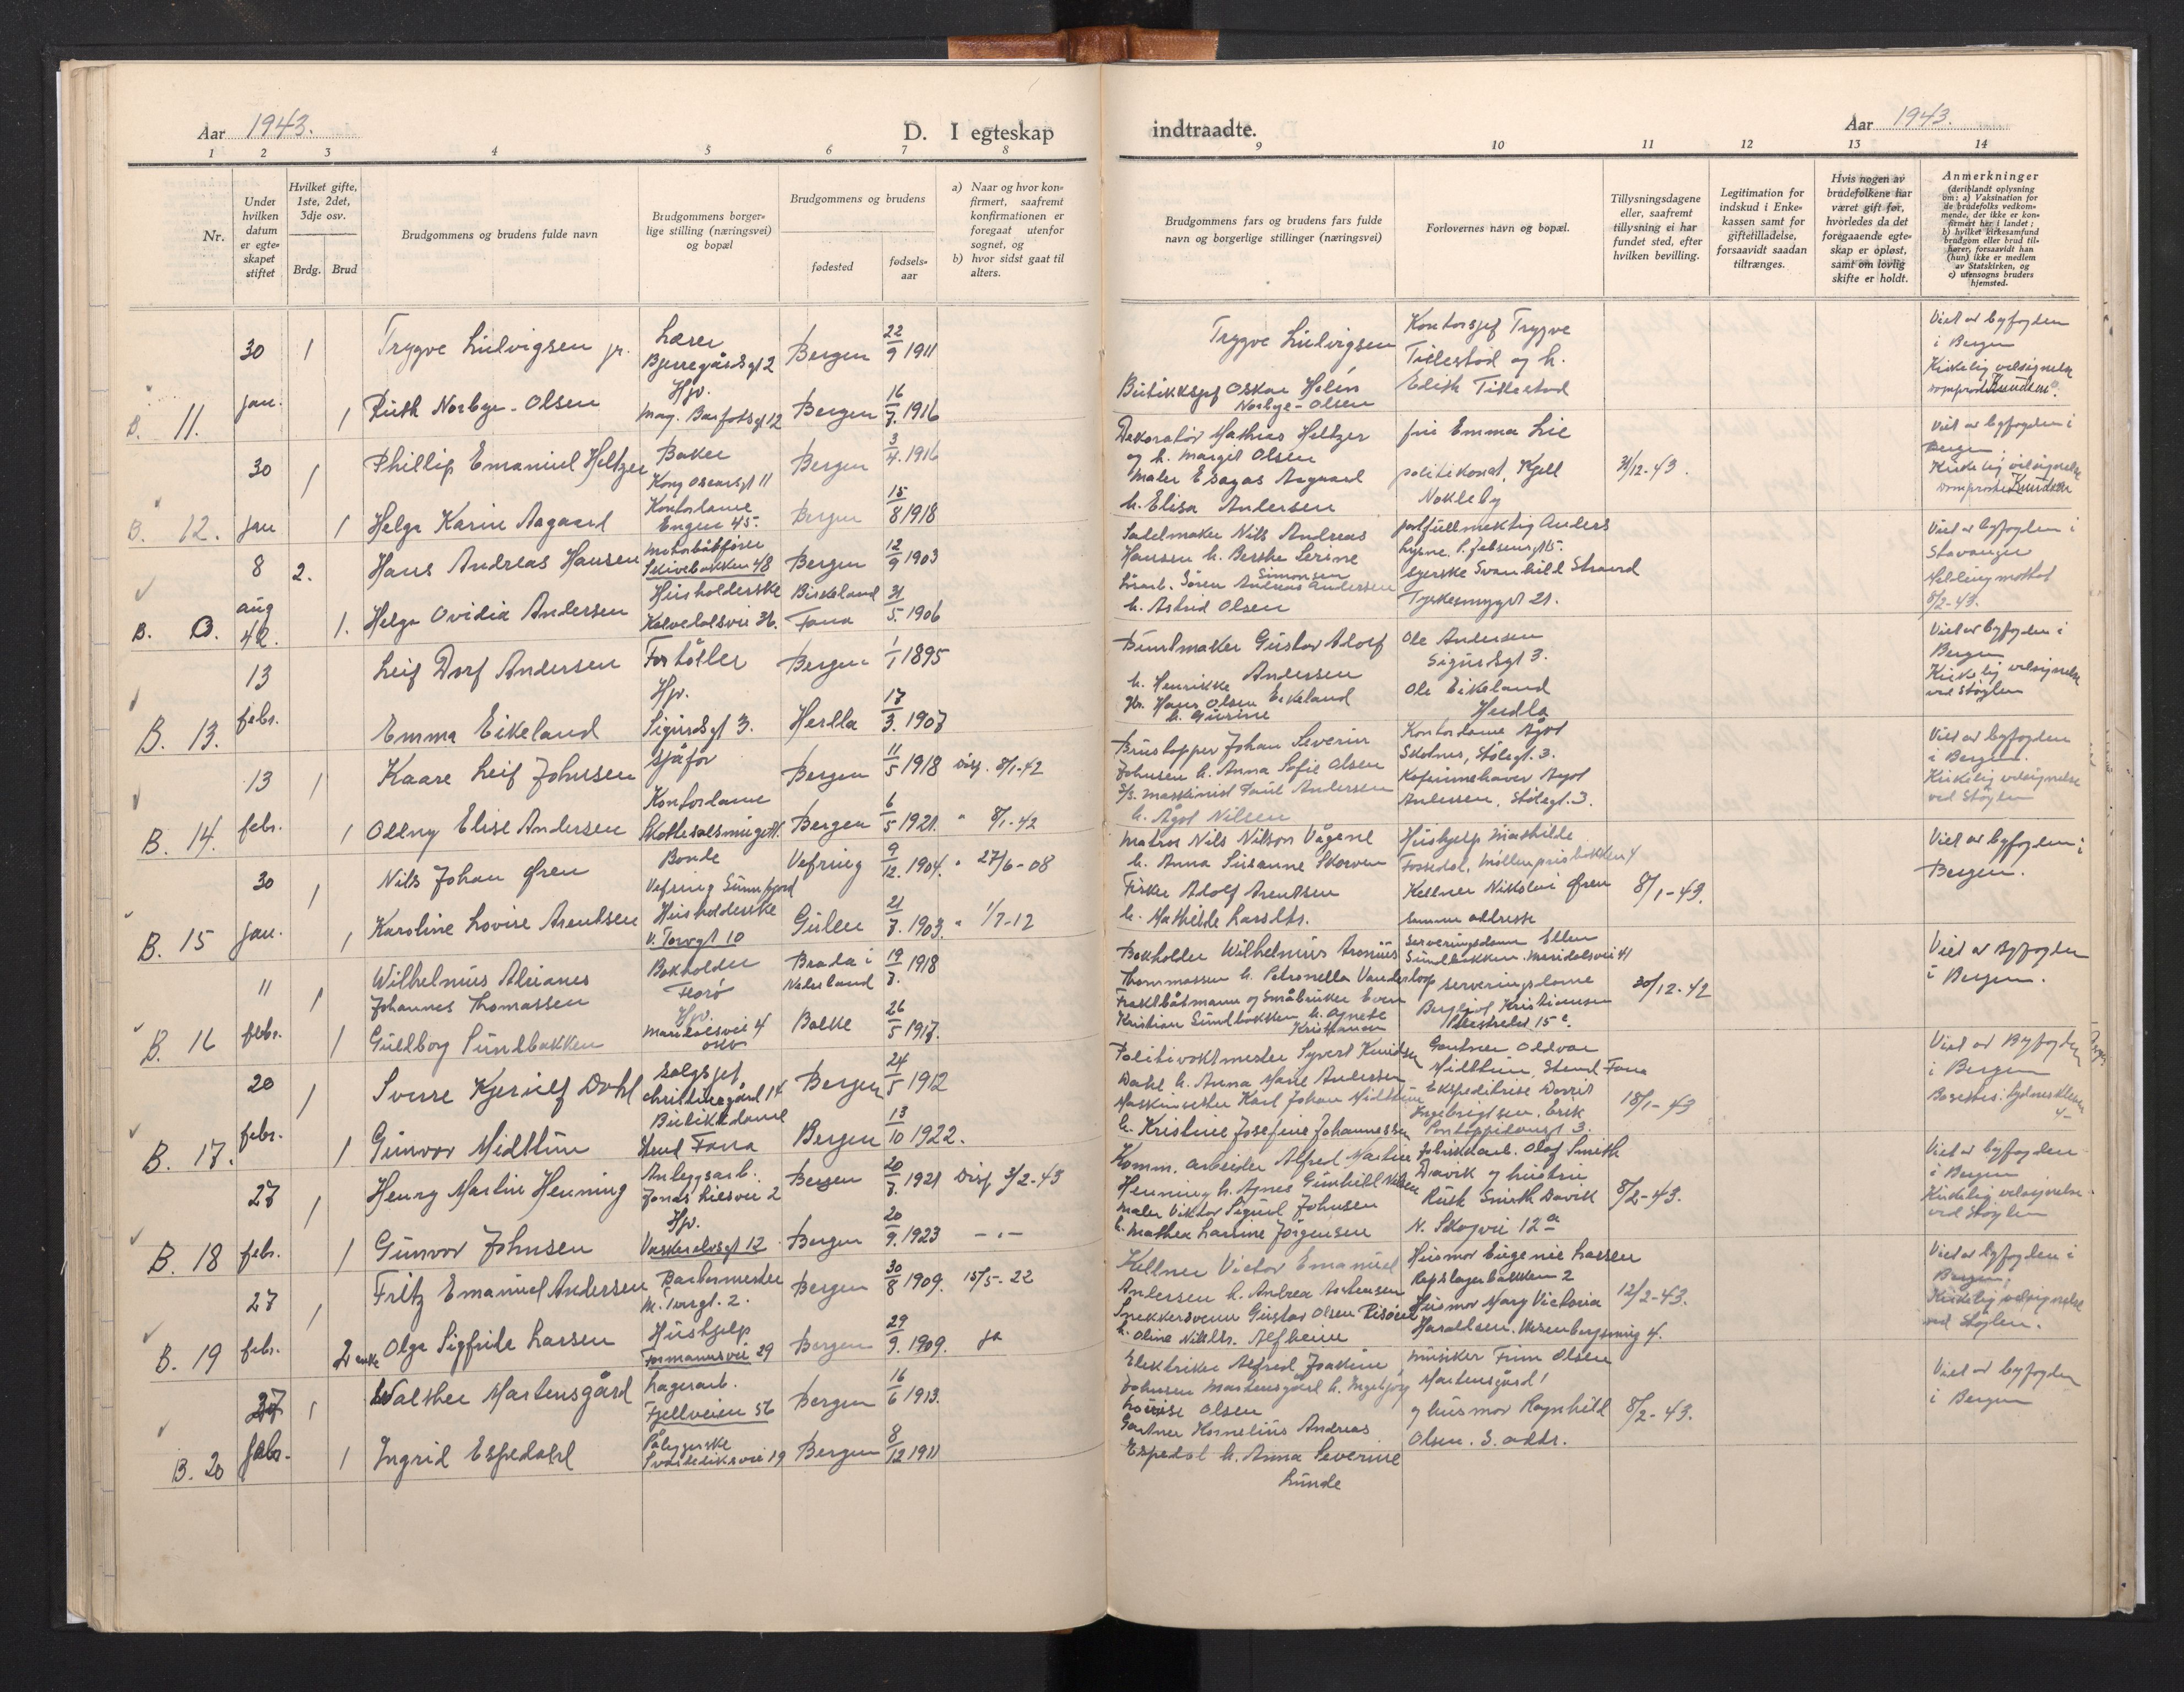 Aar 1943.
D. I egteskap
indtraadte.
Aar 1943.
1 2 3 4 5 6 7 8
9 10 11 12 13 14
Nr.
Under hvilken datum er egte-skapet stiftet
Hvilket gifte, 1ste, 2det, 3dje osv.
Brdg. Brud
Brudgommens og brudens fulde navn
Brudgommens borger-lige stilling (næringsvei) og bopæl
Brudgommens og brudens
fødested
fødsels-aar
a) Naar og hvor kon-firmert, saafremt konfirmationen er foregaat utenfor sognet, og
b) hvor sidst gaat til alters.
Brudgommens fars og brudens fars fulde navn og borgerlige stillinger (næringsvei)
Forlovernes navn og bopæl.
Tillysningsdagene eller, saafremt tillysning ei har fundet sted, efter hvilken bevilling.
Legitimation for indskud i Enke-kassen samt for giftetilladelse, forsaavidt saadan tiltrænges.
Hvis nogen av brudefolkene har været gift før, hvorledes da det foregaaende egte-skap er opløst, samt om lovlig skifte er holdt.
Anmerkninger
(deriblandt oplysning om: a) Vaksination for de brudefolks vedkom-mende, der ikke er kon-firmert her i landet; b) hvilket kirkesamfund brudgom eller brud til-hører, forsaavidt han (hun) ikke er medlem av Statskirken, og c) utensogns bruders hjemsted.
B. 11.
30 jan.
1
Trygve Ludvigsen jr.
Lærer
Bjerregårdsgt 2
Bergen
22/9 1911
Trygve Ludvigsen
Kontorsjef Trygve
Tillestad og h.
Edith Tillestad
Viet av byfogden
i Bergen
Kirkelig velsignelse
domprost Knudsen.
1
Ruth Norbye-Olsen
Hpv.
Mag. Barfotsgt 12
Bergen
16/7. 1916
Butikksjef Oskar
Norbye-Olsen
B. 12.
30 jan
1
Phillip Emanuel Heltzer
Baker
Kong Oscarsgt 11
Bergen
3/4. 1916
Dekoratør Mathias Heltzer
og h. Margit Olsen
fru Emma Lie
politikonst. Kjell
Nokleby
31/12-43.
Viet av byfogden i
Bergen.
Kirkelig velsignelse
domprost Knudsen
1
Helga Karin Aagaard
Kontordame
Engen 45.
Bergen
15/8 1918
Maler Aagaard
h. Elisa Andersen
B. O.
8 aug 42.
2.
Hans Andreas Hansen
Motorbåtfører
Skivebakken 48
Bergen
12/9 1903
Sadelmaker Nils Andreas
Hanssen h. Berthe Serine
Simonsen
postfullmektig Anders
Lysne.
Viet av byfogden i
Stavanger
Melding mottat
8/2-43.
1.
Helga Ovidia Andersen
Husholderske
Kalvedalsvei 36.
Birkeland
Fana
31/5. 1906
Søren Andreas Andersen
h. Astrid Olsen
syerske Svanhild Strand
Tyskesmuget 21.
B. 13.
13 febr.
Leif Dorf Andersen
Fortoller
Bergen
1/1 1895
Buntmaker Gustav Adolf
Andersen
h. Henrikke
Ole Andersen
Sigurdsgt 3.
Viet av byfogden i
Bergen
Kirkelig velsignelse
ved Støylen
Emma Eikeland
Hpv.
Sigurdsgt 3.
Herdla
17/3. 1907
gbr. Hans Olsen Eikeland
h. Gurine
Ole Eikeland
Herdla
B. 14.
13 febr.
1
Kaare Leif Johnsen
sjåfør
Bergen
11/5 1918
Disp. 8/1-42
Brustopper Johan Severin
Johnsen h. Anna Sofie Olsen
Kontordame Ågot
Skotnes, Stølegt. 3.
Viet av byfogden
i Bergen.
Kirkelig velsignelse
ved Støylen
1
Oddny Elise Andersen
Kontordame
Bergen
6/5 1921.
" 8/1-42
D/S. maskinist Paul Andersen
h. Ågot Nilsen
Kafeinnehaver Ågot
Andersen, Stølegt. 3.
B. 15
30 jan.
1
Nils Johan Øren
Bonde
Vefring Sunnfjord
Vefring
9/12. 1904.
" 27/6-08
Matros Nils Nilson Vågene
h. Anna Susanne Skorven
Hushjelp Mathilde
Fossedal, Møllenprisbakken 4
8/1-43.
Viet av byfogden i
Bergen.
1
Karoline Lovise Arentsen
Husholderske
V. Torvgt 10
Gulen
21/7. 1903.
" 1/7-12
Fisker Adolf Arentsen
h. Mathilde Larsdtr.
Kellner Nikolai Øren
samme addresse
B. 16
11 febr.
1
Wilhelmus Adrianes
Johannes Thomassen
Bokholder
Florø
Breda i
Nederland
19/7. 1918
Bokholder Wilhelmus Aronius
Thommassen h. Petronella Vanderloop
Serveringsdame Ellen
Sundbakken. Maridalsvei 41
30/12-42
Viet av Byfogden
i Bergen.
1
Gudborg Sundbakken
Hpv.
Maridalsvei 4
Oslo
Balke
26/5 1917.
Fraktbåtmann og småbruker Even
Kristian Sundbakken h. Agnete
Kristiansen
serveringsdame
Bergljot Kristiansen
15 c.
B. 17.
20 febr.
1
Sverre Kjerulf Dahl
Salgsjef
Christiesgård 14
Bergen
24/5 1912
Politivaktmester Syvert Knudsen
Dahl h. Anna Marie Andersen
Gartner Oldvar
Midttun, Stend Fana
18/1-43
Viet av Byfogden
i Bergen
1
Gunvor Midttun
Butikkdame
Stend Fana
Bergen
13/10 1922.
Maskinmester Karl Johan Midttun
h. Kristine Josefine Johannessen
Ekspeditrise Dorrit
Ingebrigtsen, Ersk
Pontoppidansgt 3.
B. 18
27 febr.
1
Henry Martin Henning
Anleggsarb.
Jonas Liesvei 2
Bergen
20/7. 1921
Disp 3/2-43
Komm. arbeider Alfred Martin
Henning h. Agnes Gunhild Nilsen
Fabrikkarb. Olaf Smith
Davik og hustru
Ruth Smith Davik
N. Skogvei 12 a
8/2-43.
Viet av byfogden
i Bergen
Kirkelig velsignelse
ved Støylen
1
Gunvor Johnsen
Hpv.
Vaskerelvsgt 12
Bergen
20/9. 1923
-"-
Maler Viktor Sigurd Johnsen
h. Mathea Larsine Jørgensen
B. 19
27 febr.
1
Fritz Emanuel Andersen
Barbermester
M. Torvgt. 2.
Bergen
30/8 1909.
15/5-22
Kellner Victor Emanuel
Andersen h. Andrea
Husmor Eugenie Larsen
Repslagerbakken 2
12/2-43.
Viet av byfogden i
Bergen.
Kirkelig velsignelse
ved Støylen.
2 enke
Olga Sigfride Larsen
Hushjelp
Formannsvei 29
Bergen
29/9. 1909.
ja
Snekkersvenn Gustav Olsen Risøen
h. Oline Nilsdtr. Alfheim
Husmor Mary Victoria
Haraldsen. Wesenbergsmug 4.
B. 20
27 febr.
1
Walther Martensgård
Lagerarb.
Fjellveien 56
Bergen
16/6 1913.
Elektriker Alfred Joakim
Johnsen Martensgård h. Ingebjørg
Lovise Olsen
Musiker Finn Olsen
Martensgård
og husmor Ragnhild
Olsen. S. addr.
8/2-43.
Viet av byfogden
i Bergen
1
Ingrid Espedahl
Påleggerske
Bergen
8/12 1911
Gartner Kornelius Andreas
Espedal h. Anna Severine
Lunde